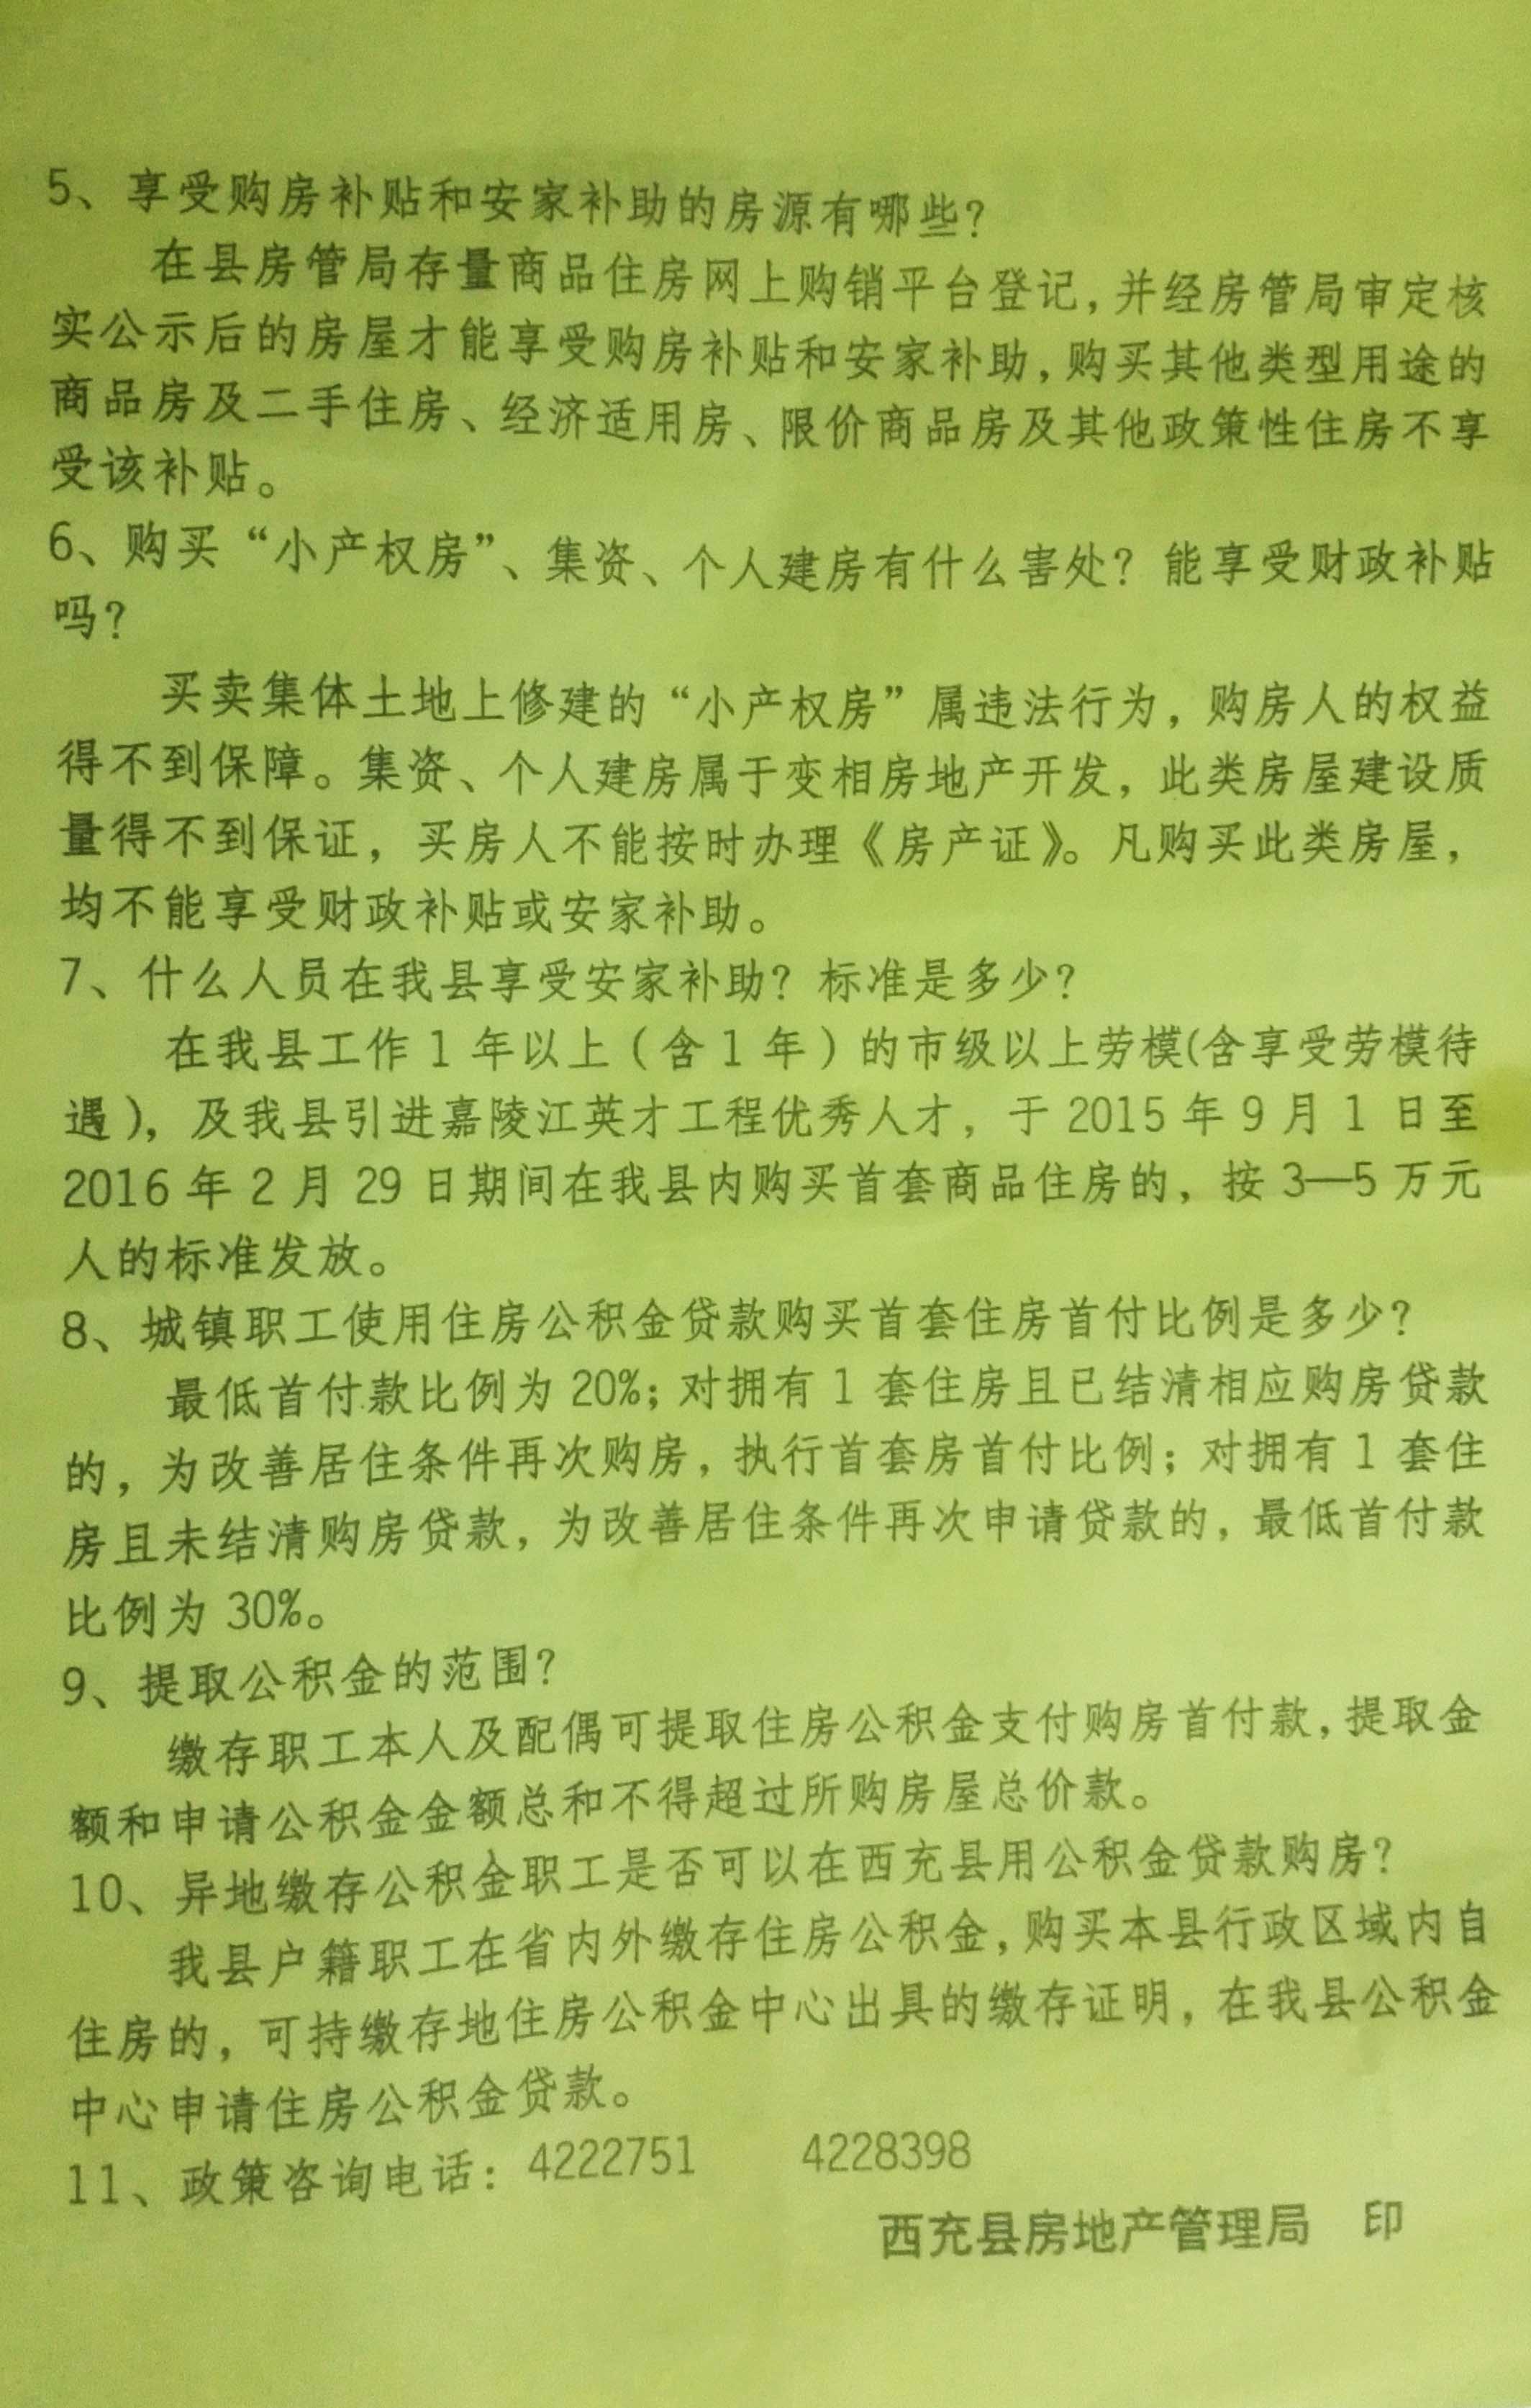 5、享受购房补贴和安家补助的房源有哪些？
在县房管局存量商品住房网上购销平台登记，并经房管局审定核
实公示后的房屋才能享受购房补贴和安家补助，购买其他类型用途的
商品房及二手住房、经济适用房、限价商品房及其他政策性住房不享
受该补贴。
6、购买“小产权房”、集资、个人建房有什么害处？能享受财政补贴
吗？
买卖集体土地上修建的“小产权房”属违法行为，购房人的权益
得不到保障。集资、个人建房属于变相房地产开发，此类房屋建设质
量得不到保证，买房人不能按时办理《房产证》。凡购买此类房屋，
均不能享受财政补贴或安家补助。
7、什么人员在我县享受安家补助？标准是多少？
在我县工作1年以上（含1年）的市级以上劳模(含享受劳模待
遇)，及我县引进嘉陵江英才工程优秀人才，于2015年9月1日至
2016年2月29日期间在我县内购买首套商品住房的，按3—5万元
人的标准发放。
8、城镇职工使用住房公积金贷款购买首套住房首付比例是多少？
最低首付款比例为20%；对拥有1套住房且已结清相应购房贷款
的，为改善居住条件再次购房，执行首套房首付比例；对拥有1套住
房且未结清购房贷款，为改善居住条件再次申请贷款的，最低首付款
比例为30%。
9、提取公积金的范围？
缴存职工本人及配偶可提取住房公积金支付购房首付款，提取金
额和申请公积金金额总和不得超过所购房屋总价款。
10、异地缴存公积金职工是否可以在西充县用公积金贷款购房？
我县户籍职工在省内外缴存住房公积金，购买本县行政区域内自
住房的，可持缴存地住房公积金中心出具的缴存证明，在我县公积金
中心申请住房公积金贷款。
11、政策咨询电话：4222751 4228398
西充县房地产管理局 印